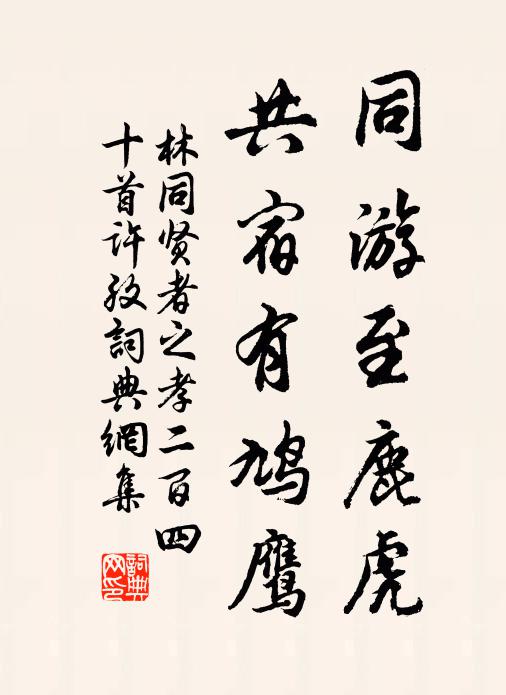 同游至鹿虎
共宿有鸠鹰
林同贤者之孝二百四
十首许孜詞典網集
詞典
网印